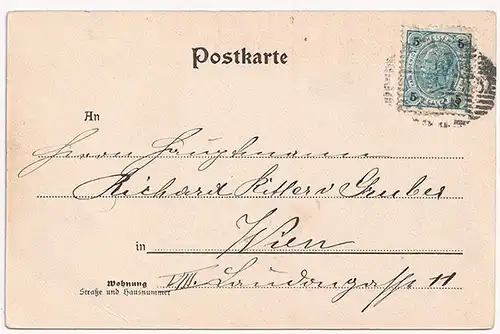 Postkarte
5 5
5 5
An
Herrn Hauptmann
Richard Ritter v Gruber
in Wien
Wohnung VIII. Laudongasse 11
Straße und Hausnummer